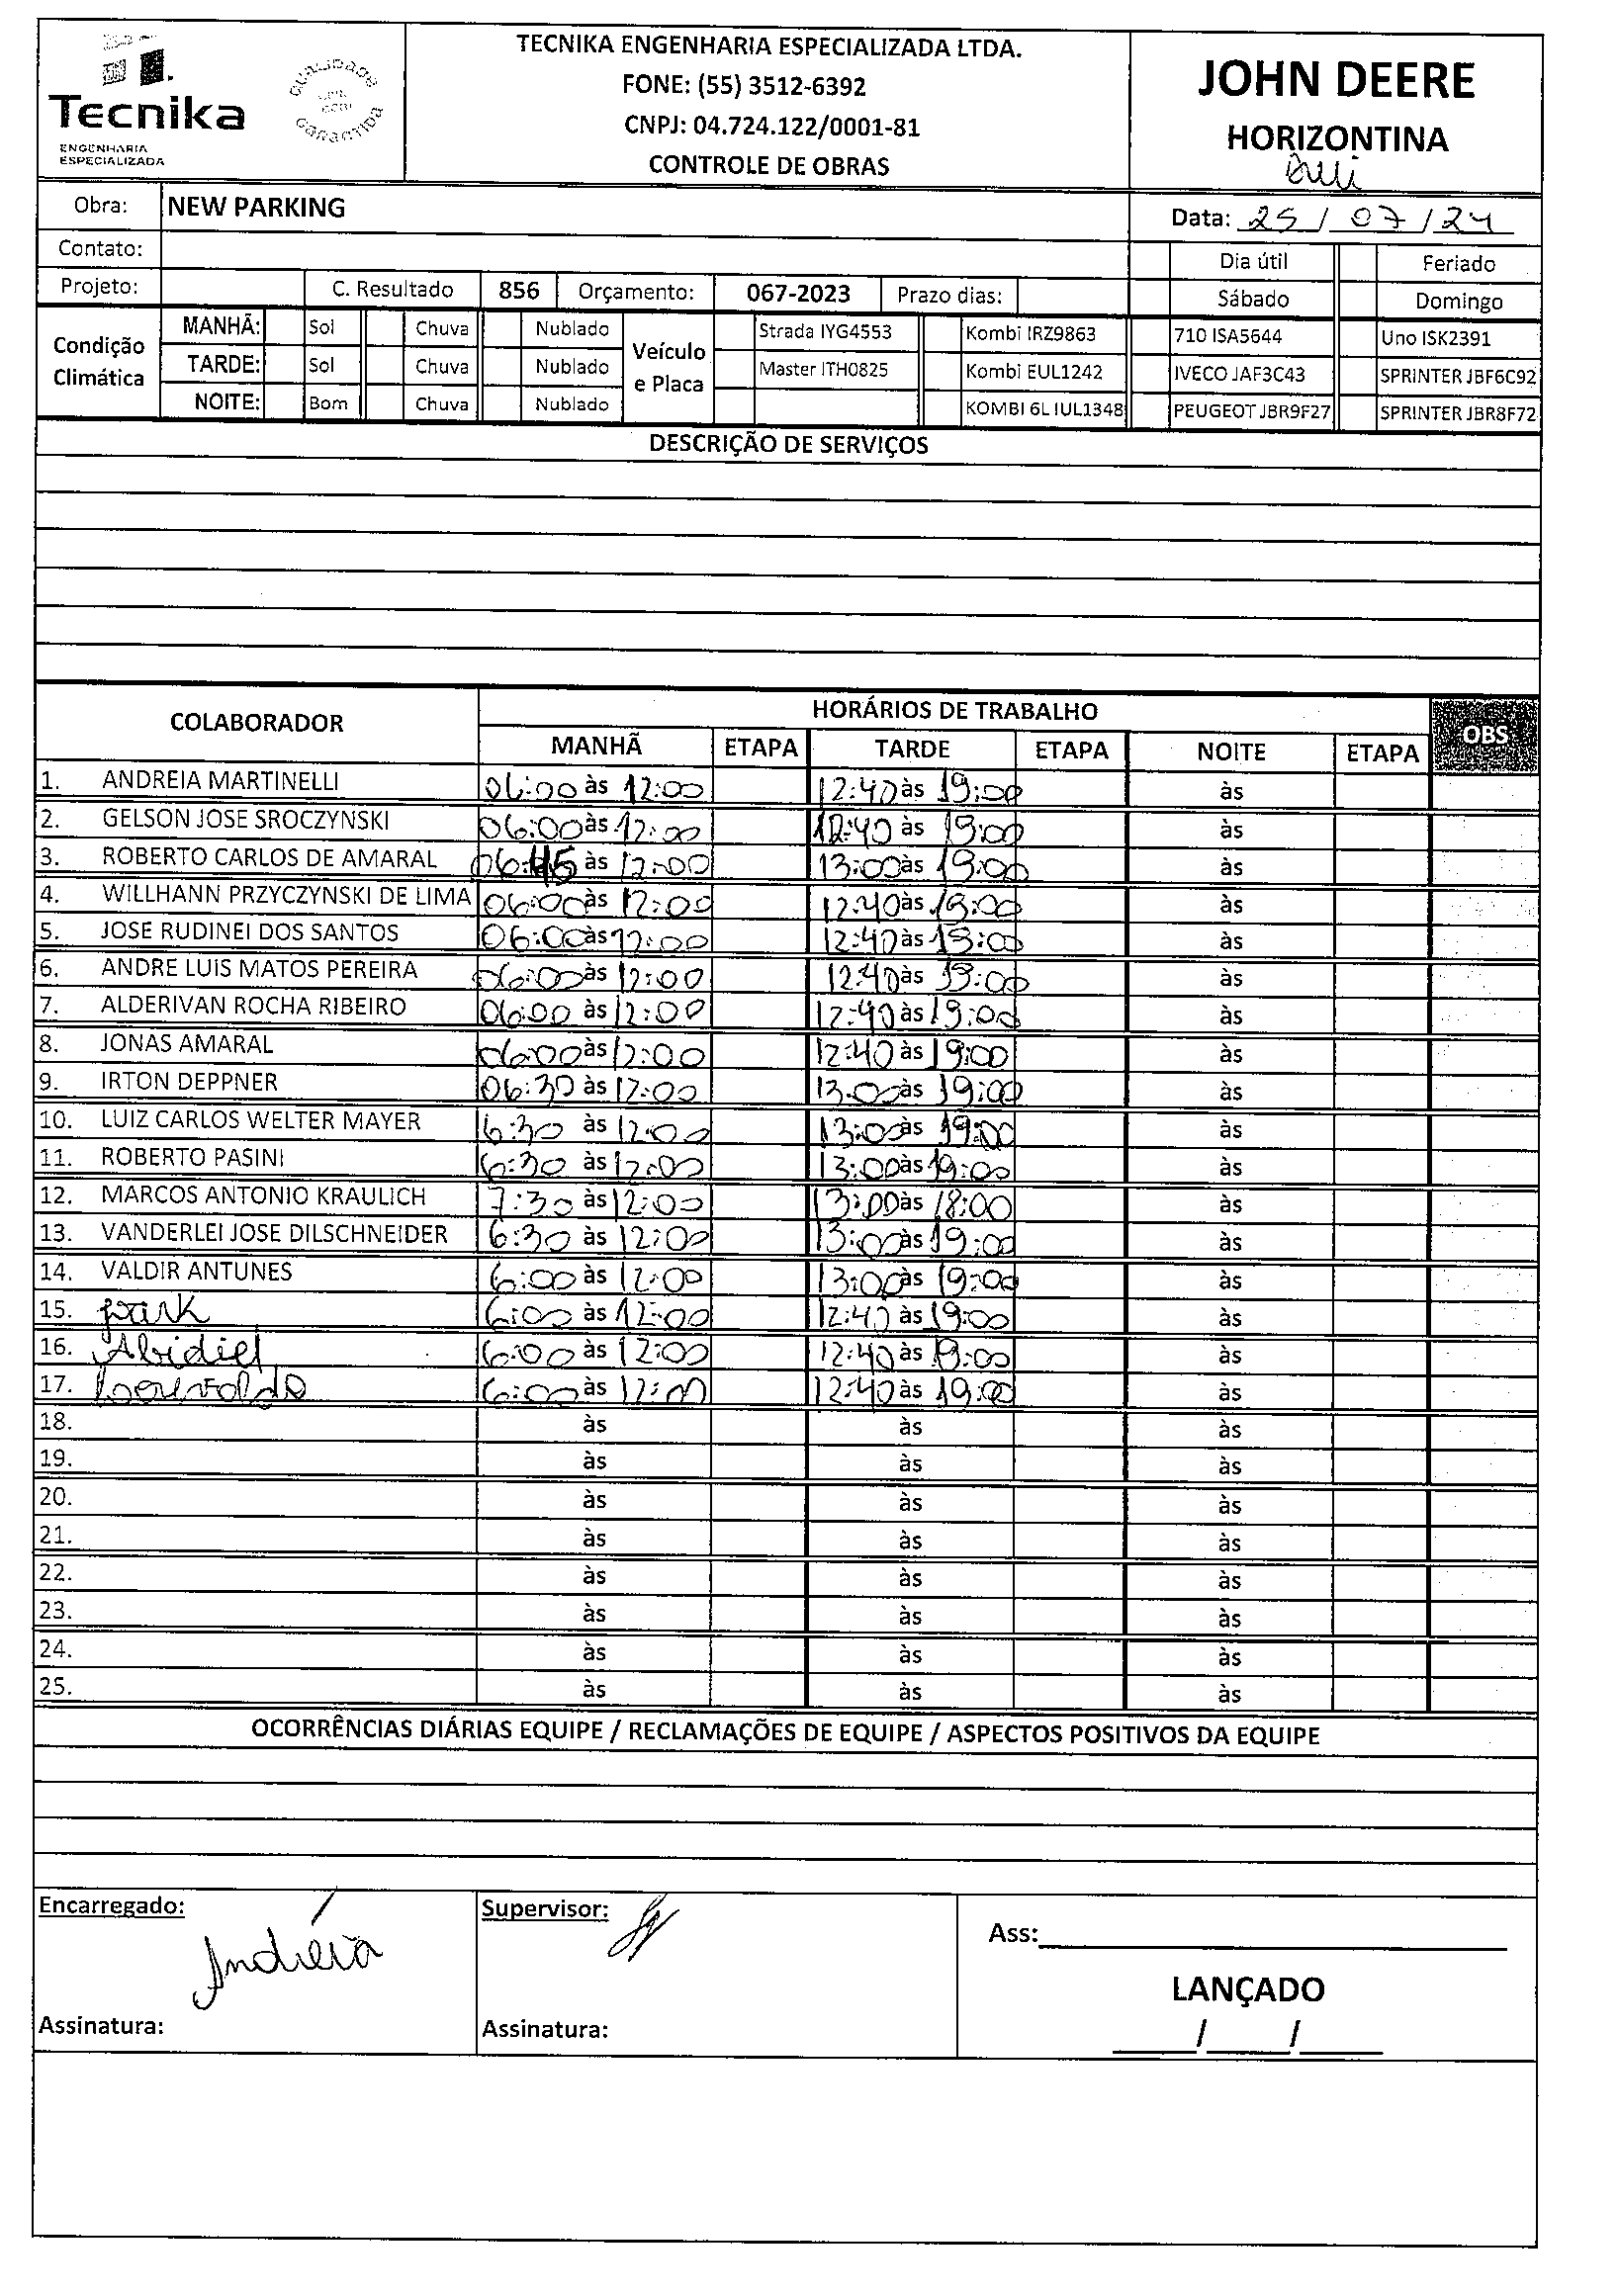 Tecnika
ENGENHARIA
ESPECIALIZADA
QUALIDADE
GARANTIDA
TECNIKA ENGENHARIA ESPECIALIZADA LTDA.
FONE: (55) 3512-6392
CNPJ: 04.724.122/0001-81
CONTROLE DE OBRAS
JOHN DEERE
HORIZONTINA
Obra: NEW PARKING
Data: 25/07/24
Contato:
Dia útil Feriado
Projeto: C. Resultado 856 Orçamento: 067-2023 Prazo dias:
Sábado Domingo
Condição Climática
MANHÃ: Sol Chuva Nublado
TARDE: Sol Chuva Nublado
NOITE: Bom Chuva Nublado
Veículo e Placa
Strada IYG4553 Kombi IRZ9863 710 ISA5644 Uno ISK2391
Master ITH0825 Kombi EUL1242 IVECO JAF3C43 SPRINTER JBF6C92
KOMBI 6L IUL1348 PEUGEOT JBR9F27 SPRINTER JBR8F72
DESCRIÇÃO DE SERVIÇOS
COLABORADOR HORÁRIOS DE TRABALHO OBS
MANHÃ ETAPA TARDE ETAPA NOITE ETAPA
1. ANDREIA MARTINELLI 06:00 às 12:00 12:40 às 19:00 às
2. GELSON JOSE SROCZYNSKI 06:00 às 12:00 12:40 às 19:00 às
3. ROBERTO CARLOS DE AMARAL 06:45 às 12:00 13:00 às 19:00 às
4. WILLHANN PRZYCZYNSKI DE LIMA 06:00 às 12:00 12:40 às 19:00 às
5. JOSE RUDINEI DOS SANTOS 06:00 às 12:00 12:40 às 19:00 às
6. ANDRE LUIS MATOS PEREIRA 06:00 às 12:00 12:40 às 19:00 às
7. ALDERIVAN ROCHA RIBEIRO 06:00 às 12:00 12:40 às 19:00 às
8. JONAS AMARAL 06:00 às 12:00 12:40 às 19:00 às
9. IRTON DEPPNER 06:30 às 12:00 13:00 às 19:00 às
10. LUIZ CARLOS WELTER MAYER 6:30 às 12:00 13:00 às 19:00 às
11. ROBERTO PASINI 6:30 às 12:00 13:00 às 19:00 às
12. MARCOS ANTONIO KRAULICH 7:30 às 12:00 13:00 às 18:00 às
13. VANDERLEI JOSE DILSCHNEIDER 6:30 às 12:00 13:00 às 19:00 às
14. VALDIR ANTUNES 6:00 às 12:00 13:00 às 19:00 às
15. 6:00 às 12:00 12:40 às 19:00 às
16. Abidiel 6:00 às 12:00 12:40 às 19:00 às
17. 6:00 às 12:00 12:40 às 19:00 às
18. às às às
19. às às às
20. às às às
21. às às às
22. às às às
23. às às às
24. às às às
25. às às às
OCORRÊNCIAS DIÁRIAS EQUIPE / RECLAMAÇÕES DE EQUIPE / ASPECTOS POSITIVOS DA EQUIPE
Encarregado: Supervisor:
Ass:
Andréia
LANÇADO
Assinatura: Assinatura:
/ /